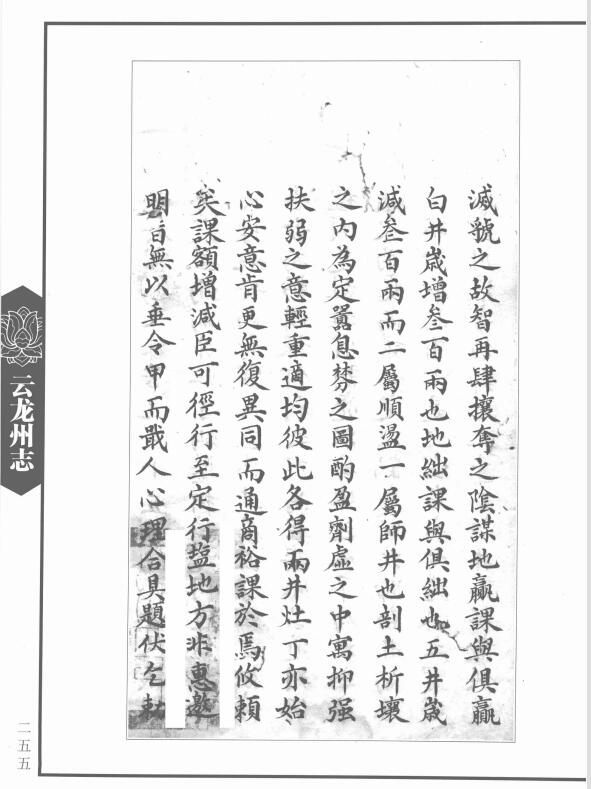 滅虢之故智再肆攘奪之陰謀地贏課與俱贏
白井歲增叁百兩也地絀課與俱絀也五井歲
減叁百兩而二屬順盪一屬師井也剖土析壤
之内為定囂息棼之圖酌盈劑虛之中寓抑强
扶弱之意輕重適均彼此各得兩井灶丁亦始
心安意肯更無復異同而通商裕課於焉攸頼
矣課額增減臣可徑行至定行塩地方非惠邀
明旨無以垂令甲而戢人心理合具題伏乞勅
云龙州志
二五五